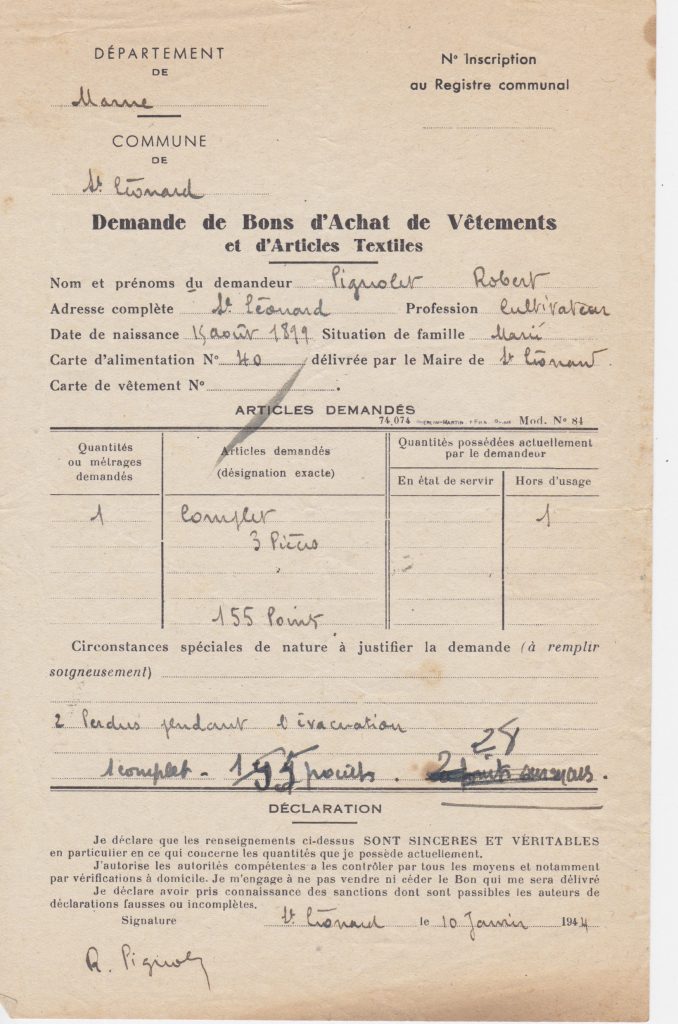 DÉPARTEMENT
DE
Marne
N° Inscription
au Registre communal
COMMUNE
DE
St Léonard
Demande de Bons d'Achat de Vêtements
et d'Articles Textiles
Nom et prénoms du demandeur Pignolet Robert
Adresse complète St Léonard Profession Cultivateur
Date de naissance 15 août 1899 Situation de famille Marié
Carte d'alimentation N° 40 délivrée par le Maire de St Léonard
Carte de vêtement N° .
ARTICLES DEMANDÉS
74,074 Mod. N° 84
Quantités
ou métrages
demandés
Articles demandés
(désignation exacte)
Quantités possédées actuellement
par le demandeur
En état de servir
Hors d'usage
1 Complet 1
3 Pièces
155 Point
Circonstances spéciales de nature à justifier la demande (à remplir
soigneusement)
2 Perdus pendant l'évacuation
28
1 complet - 155 points .
DÉCLARATION
Je déclare que les renseignements ci-dessus SONT SINCERES ET VÉRITABLES
en particulier en ce qui concerne les quantités que je possède actuellement.
J'autorise les autorités compétentes a les contrôler par tous les moyens et notamment
par vérifications à domicile. Je m'engage à ne pas vendre ni céder le Bon qui me sera délivré
Je déclare avoir pris connaissance des sanctions dont sont passibles les auteurs de
déclarations fausses ou incomplètes.
Signature St Léonard le 10 Janvier 1944
R. Pignolet